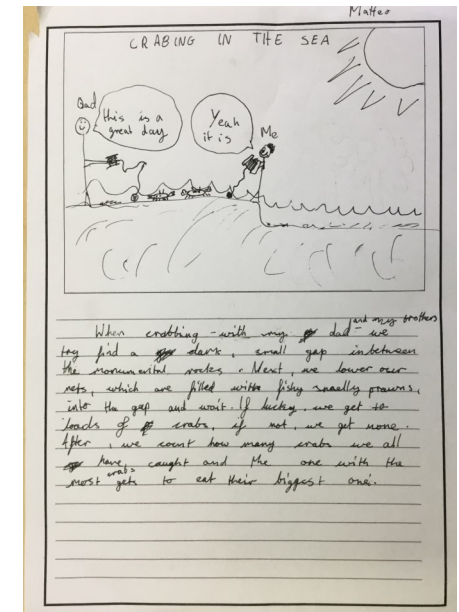 Matteo
CRABING IN THE SEA
Dad
this is a
great day
Yeah
it is
Me
and my brothers
When crabbing - with my dad - we
try find a dark, small gap inbetween
the monumental rocks. Next, we lower our
nets, which are filled with fishy smelly prawns,
into the gap and wait. If lucky, we get to
loads of crabs, if not, we get none.
After, we count how many crabs we all
have caught and the one with the
crabs
most gets to eat their biggest one.